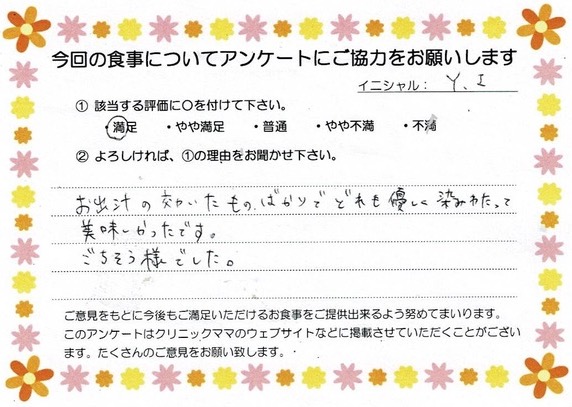 今回の食事についてアンケートにご協力をお願いします
イニシャル： Y、I
① 該当する評価に○を付けて下さい。
・満足 ・やや満足 ・普通 ・やや不満 ・不満
② よろしければ、①の理由をお聞かせ下さい。
お出汁の効いたものばかりでどれも優しく染みわたって
美味しかったです。
ごちそう様でした。
ご意見をもとに今後もご満足いただけるお食事をご提供出来るよう努めてまいります。
このアンケートはクリニックママのウェブサイトなどに掲載させていただくことがござい
ます。たくさんのご意見をお願い致します。